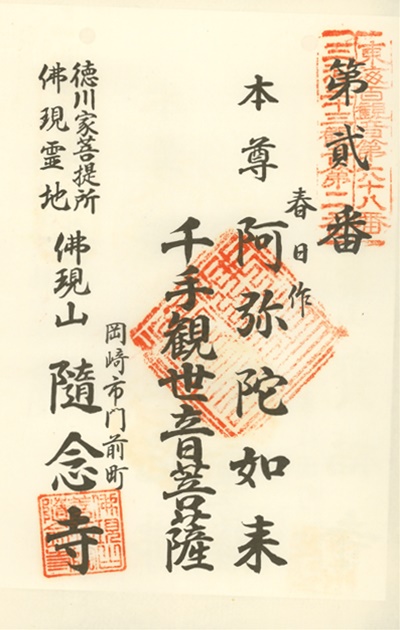 第貳番
本尊
春日作
阿弥陀如来
千手観世音菩薩
岡崎市门前町
徳川家菩提所
佛現霊地
佛現山
隨念寺